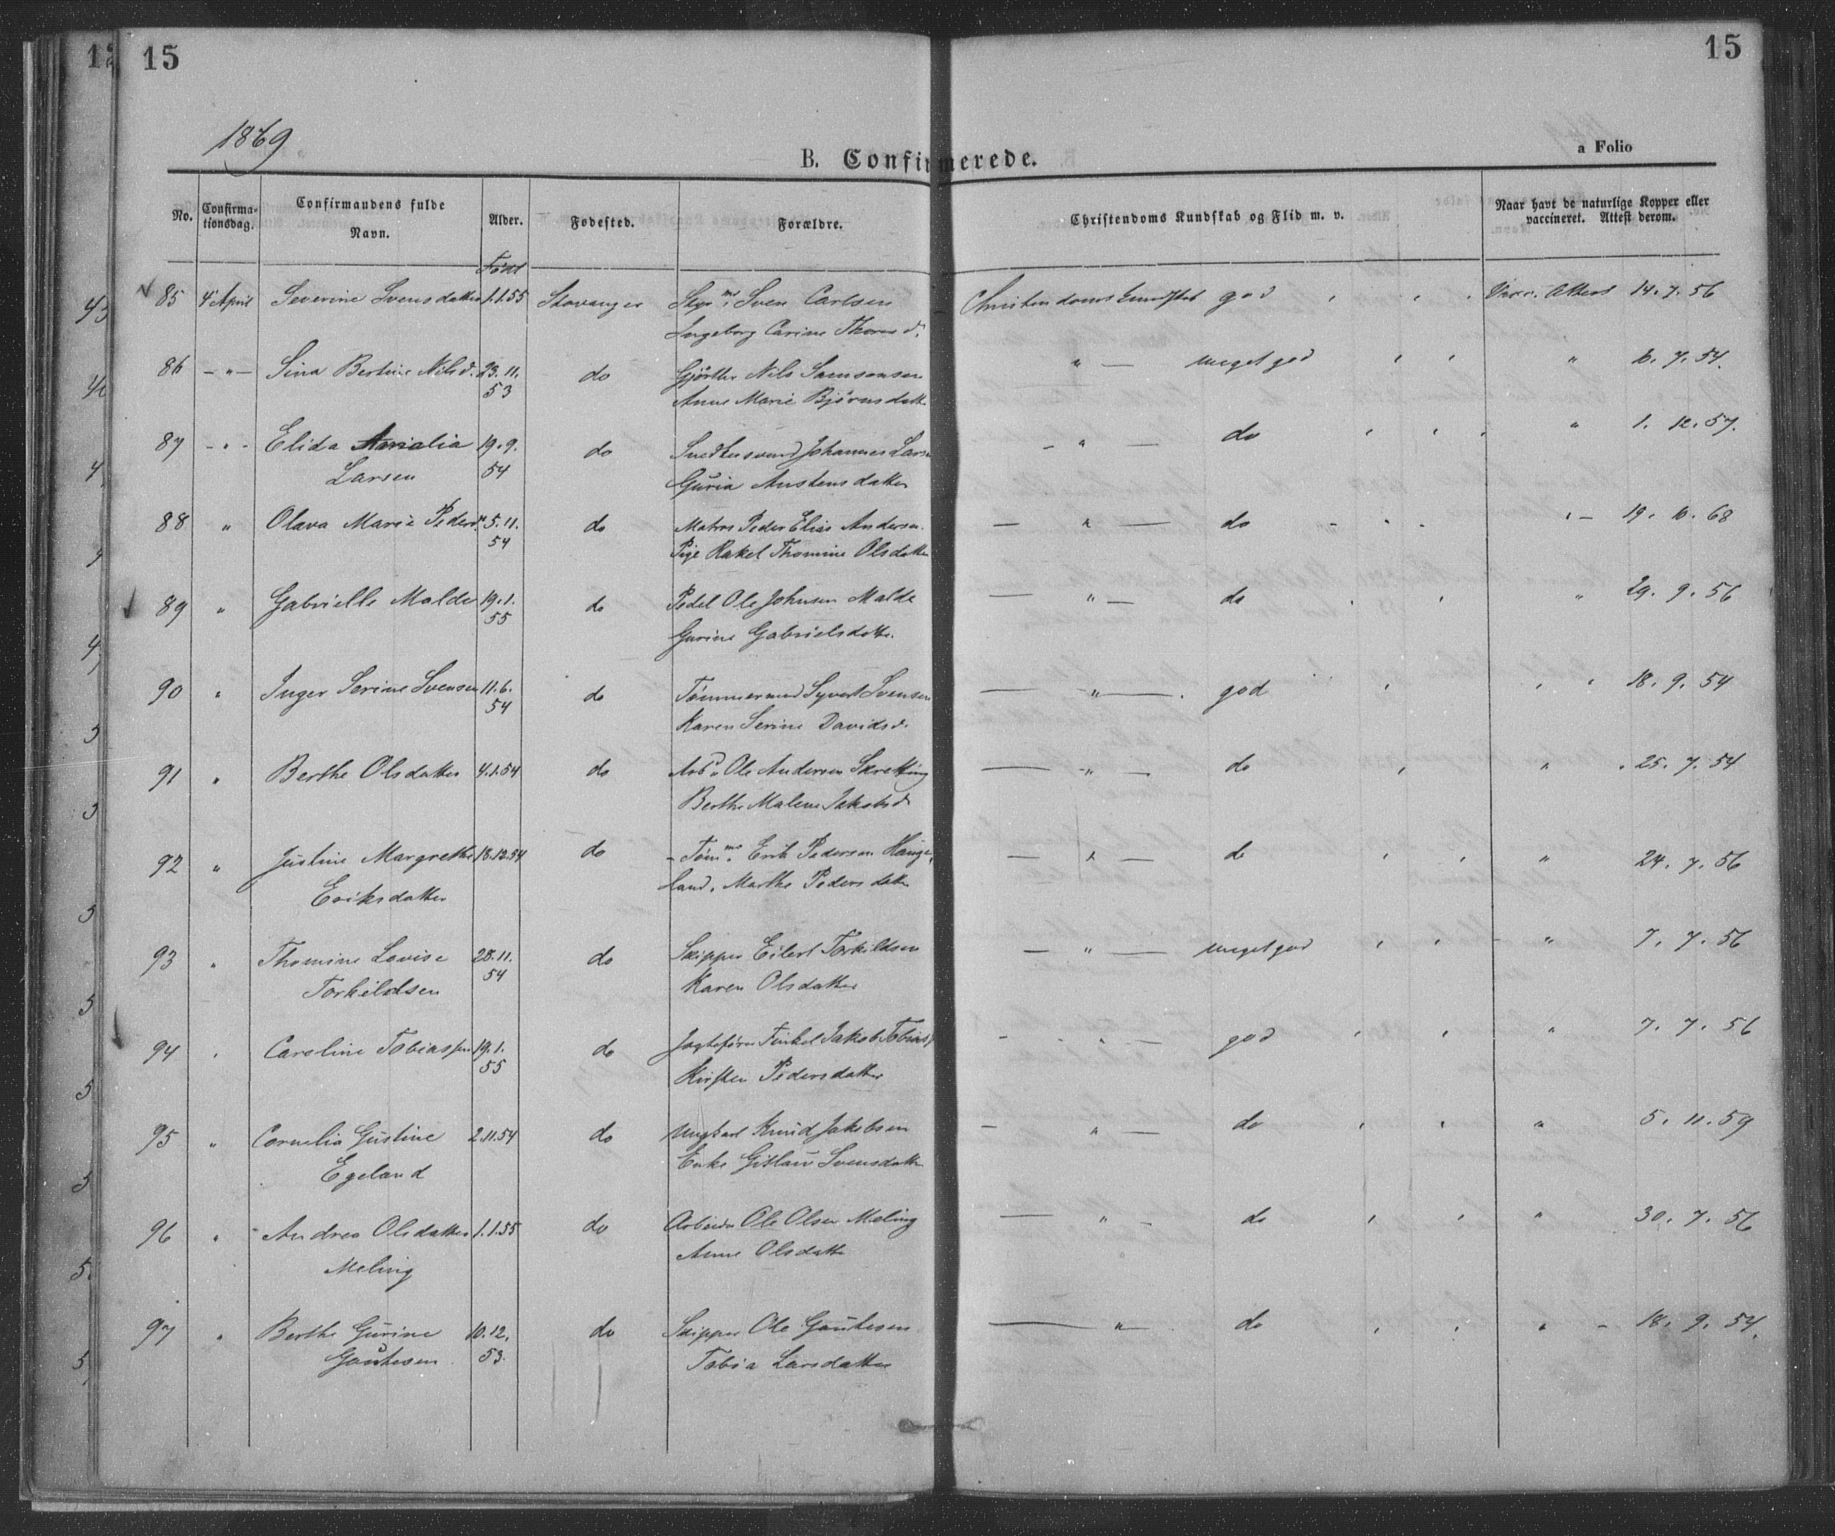 15
15
1869
B. Confirmerede.
a Folio
No. Confirma-tionsdag. Confirmandens fulde Navn. Alder. Fødested. Forældre. Christendoms Kundskab og Flid m. v. Naar havt de naturlige Kopper eller vaccineret. Attest derom.
Født
85 4 April Severine Svensdatter 1.1.55 Stavanger Styrm. Sven Carlsen Christendoms Kundskab god Vacc. Attest 14. 7. 56
Ingeborg Carine Thorsd.
86 — " — Sina Bertine Nilsd. 23. 11. do Gjørtler Nils Samsonsen " — meget god " 6. 7. 54.
53 Anne Marie Bjørnsdatt
87 - " - Elida Amalia 19. 9. do Snedkersvend Johannes Larsen - " — do " 1. 12. 57.
Larsen 54 Guria Austensdatter
88 " Olava Marie Pedersd. 5. 11. do Matros Peder Elias Andersen — " — do " — 19. 10. 68
54 Pige Rakel Thomine Olsdatter
89 " Gabrielle Malde 19. 1. do Pedel Ole Johnsen Malde — " — do " 29. 9. 56
55 Gurine Gabrielsdatter.
90 " Inger Serine Svensen 11. 6. do Tømmermand Syvert Svensen — " — god 18. 9. 54
54 Karen Serine Davidsd.
91 " Berthe Olsdatter 4.1.54 do Arb. Ole Andersen Skretting — " — do " 25. 7. 54
Berthe Malene Jakobsd
92 " Justine Margrethe 18.12.54 do Tømm. Erik Pedersen Hauge- — " — do " 24. 7. 56
Eriksdatter land. Marthe Pedersdatter
93 " Thomine Lovise 28. 11. do Skipper Eilert Torkildsen — " — meget god " 7. 7. 56
Torkildsen 54 Karen Olsdatter
94 " Caroline Tobiassen 19. 1. do Jagtefører Tinkel Jakob Tobias - " — god " 7. 7. 56
55 Kirsten Pedersdatter
95 " Cornelia Gustine 2.11.54 do Ungkarl Knud Jakobsen - " — do " 5. 11. 59
Egeland Enke Gitlau Svensdatter
96 " Andrea Olsdatter 1.1.55 do Arbeider Ole Olsen Meling — " — do " 30. 7. 56
Meling Anne Olsdatter
97 " Berthe Gurine 10. 12. do Skipper Ole Gautesen — " — do " 18. 9. 54.
Gautesen 53. Tobia Larsdatter